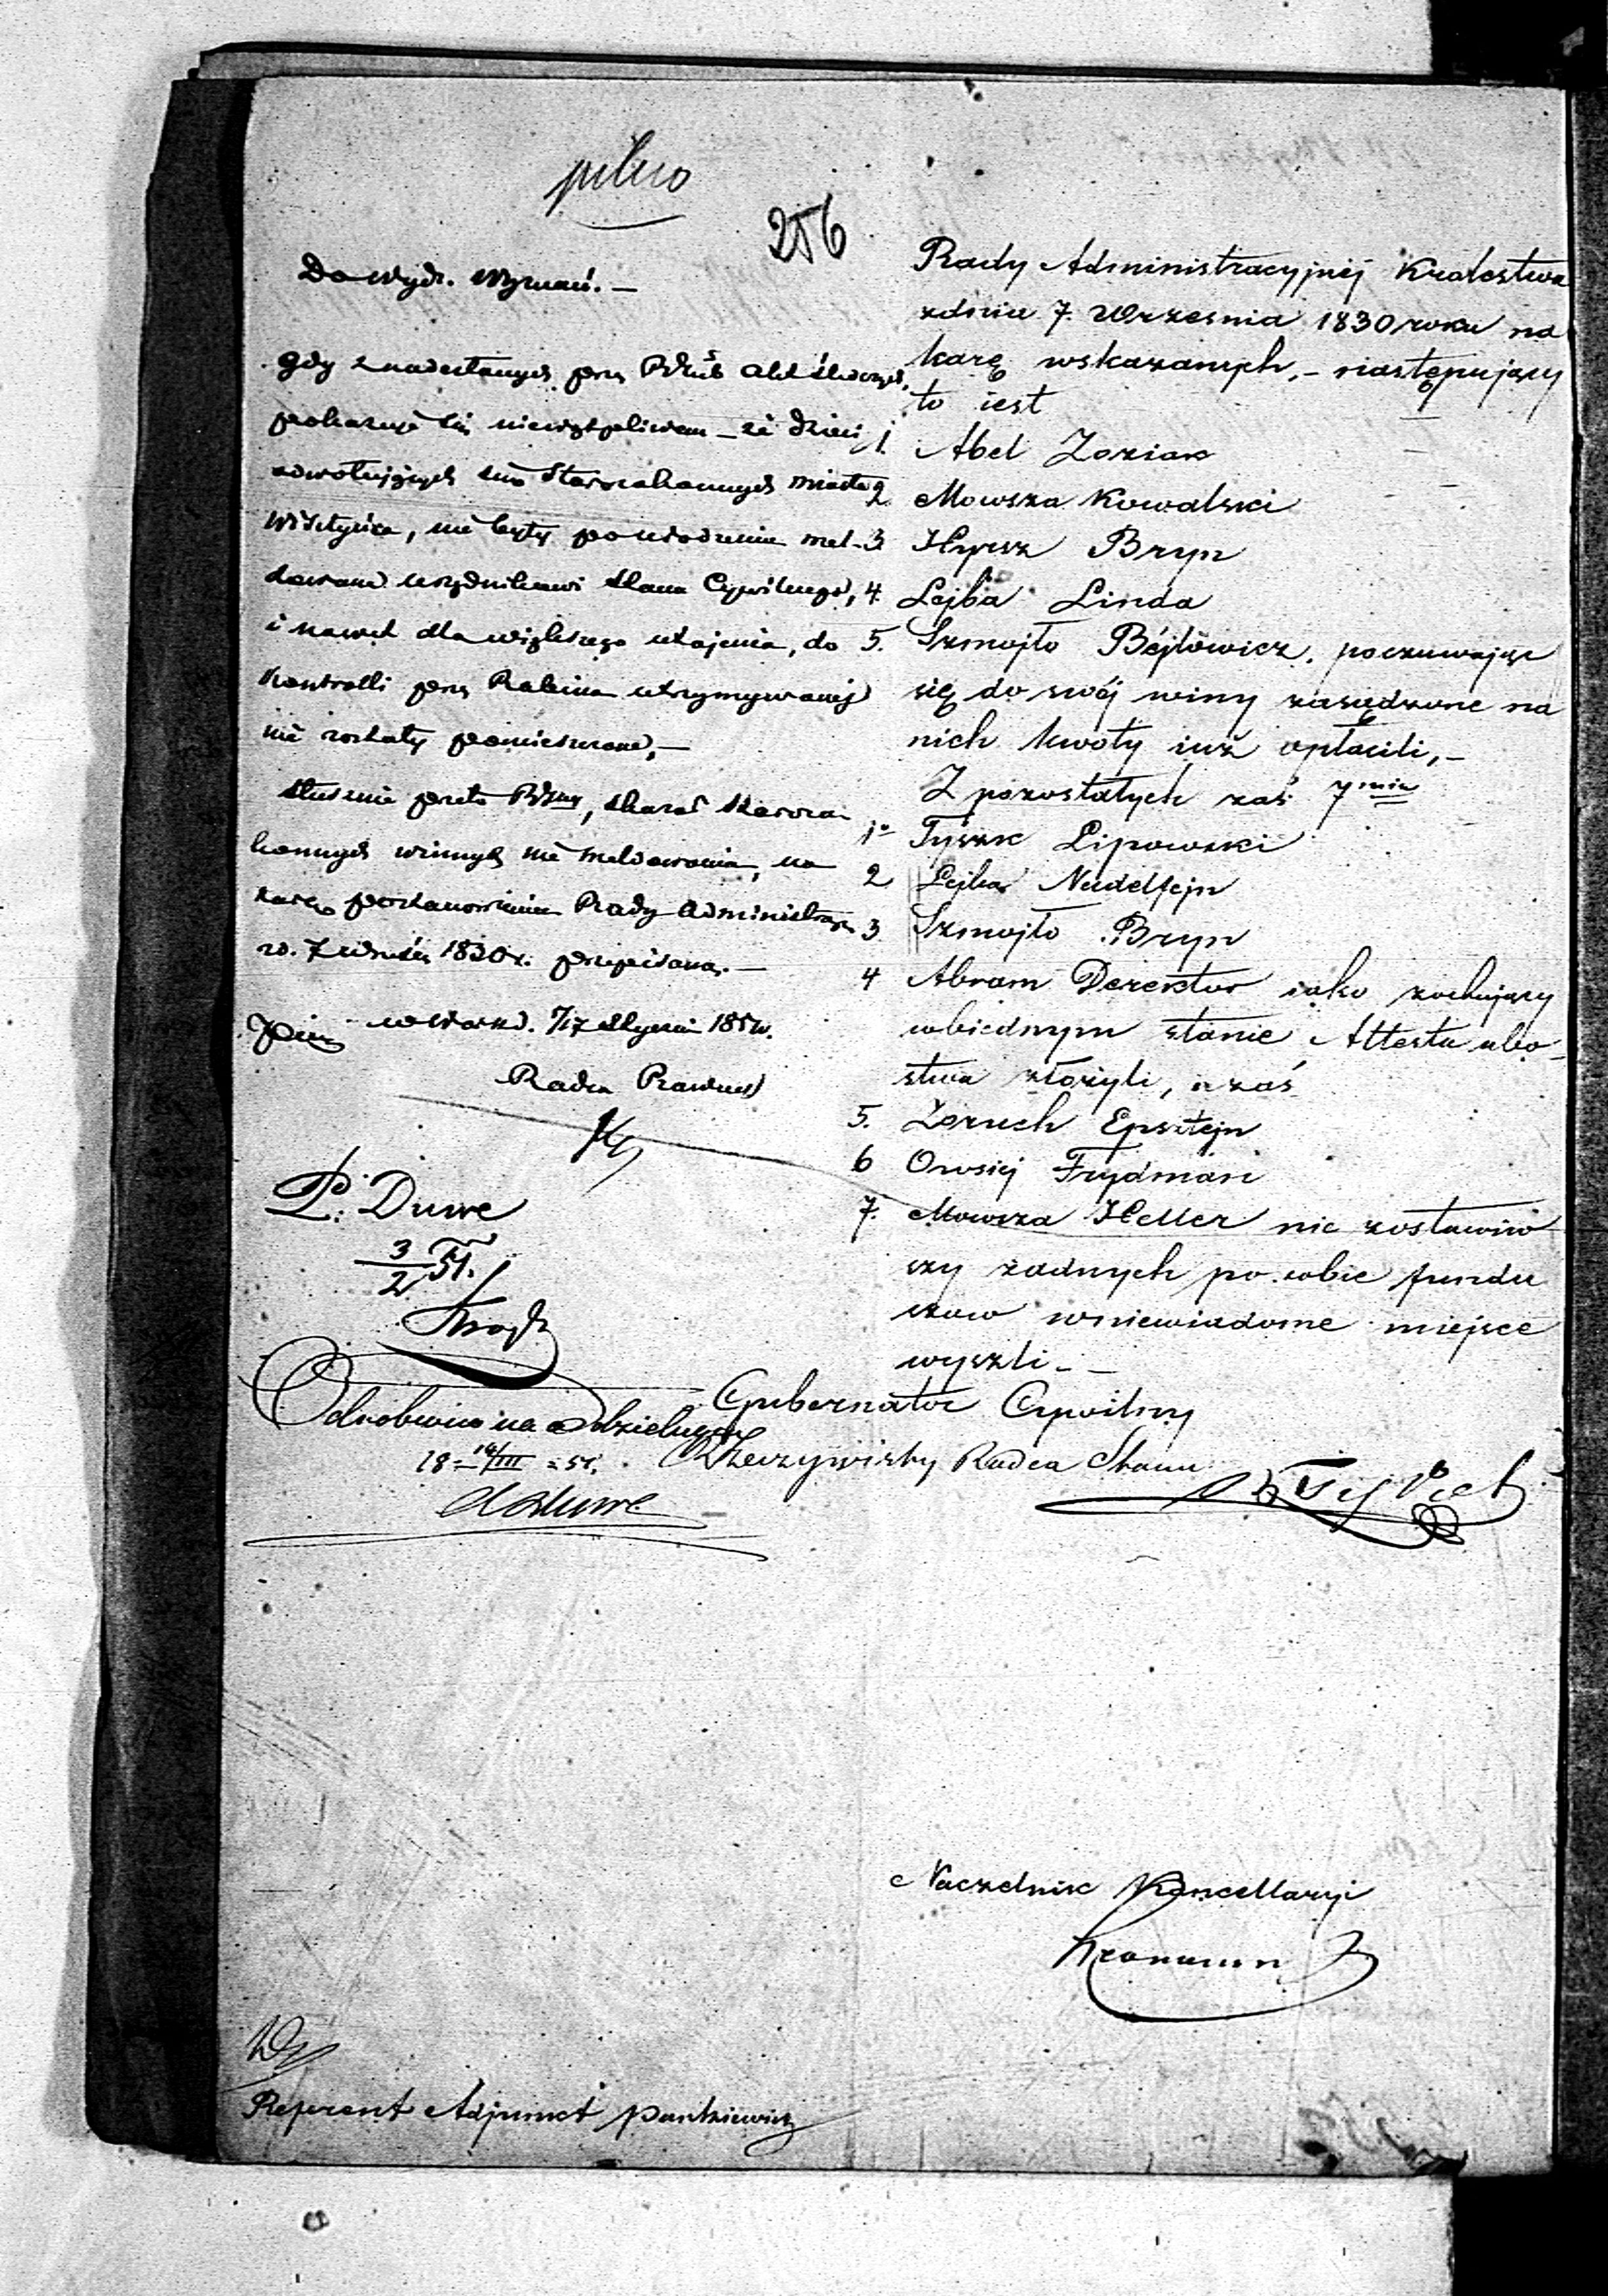 pilno
256
Do Wydz. Wyznań. —
gdy z nadesłanych przez Akt śledczych,
pokazuje się niewątpliwem — że dzieci
odwołujących się Starozakonnych miasta
Wisztyńca, nie były po urodzeniu mel-
dowane urzędnikowi Stanu Cywilnego,
i nawet dla większego utajenia, do
Kontrolli przez Rabina utrzymywanej
nie zostały pomieszczone, —
Słusznie przeto, Staroza-
konnych winnych nie meldowania, na
karę postanowieniem Rady Administracyj
1830 r. przepisaną. —
w Warsz. 7/17 Stycznia
Radca Prawny
P. Duwe
3/2 51.
Odrobiono na oddzielnym
18 14/III 51.
Duwe
Rady Administracyjnéj Krolestwa
zdnia 7. Września 1830 roku na
karę wskazanych, – następujący
to iest
1. Abel Zoziak
2 Mowsza Kowalski
3 Hyrsz Bryn
4. Lejba Linda
5. Szmojło Béjłowicz. poczuwając
się do swéj winy zasądzone na
nich kwoty iuż opłacili, –
Z pozostałych zaś 7miu
1° Lipowski
2 Lejba Nudelfejn
3 Szmojło Bryn
4 Abram Derektor iako zostający
wbiednym stanie Attesta ubo-
stwa złożyli, a zaś
5. Zoruch Epsztejn
6 Owsiej Frydman
7. Mowsza Heller nie zostawiw
szy żadnych po sobie fundu
szow wniewiadome miejsce
wyszli. –
Gubernator Cywilny
Rzeczywisty Radca Stanu
Naczelnik Kancellaryi
Referent Adjunct Pankiewicz